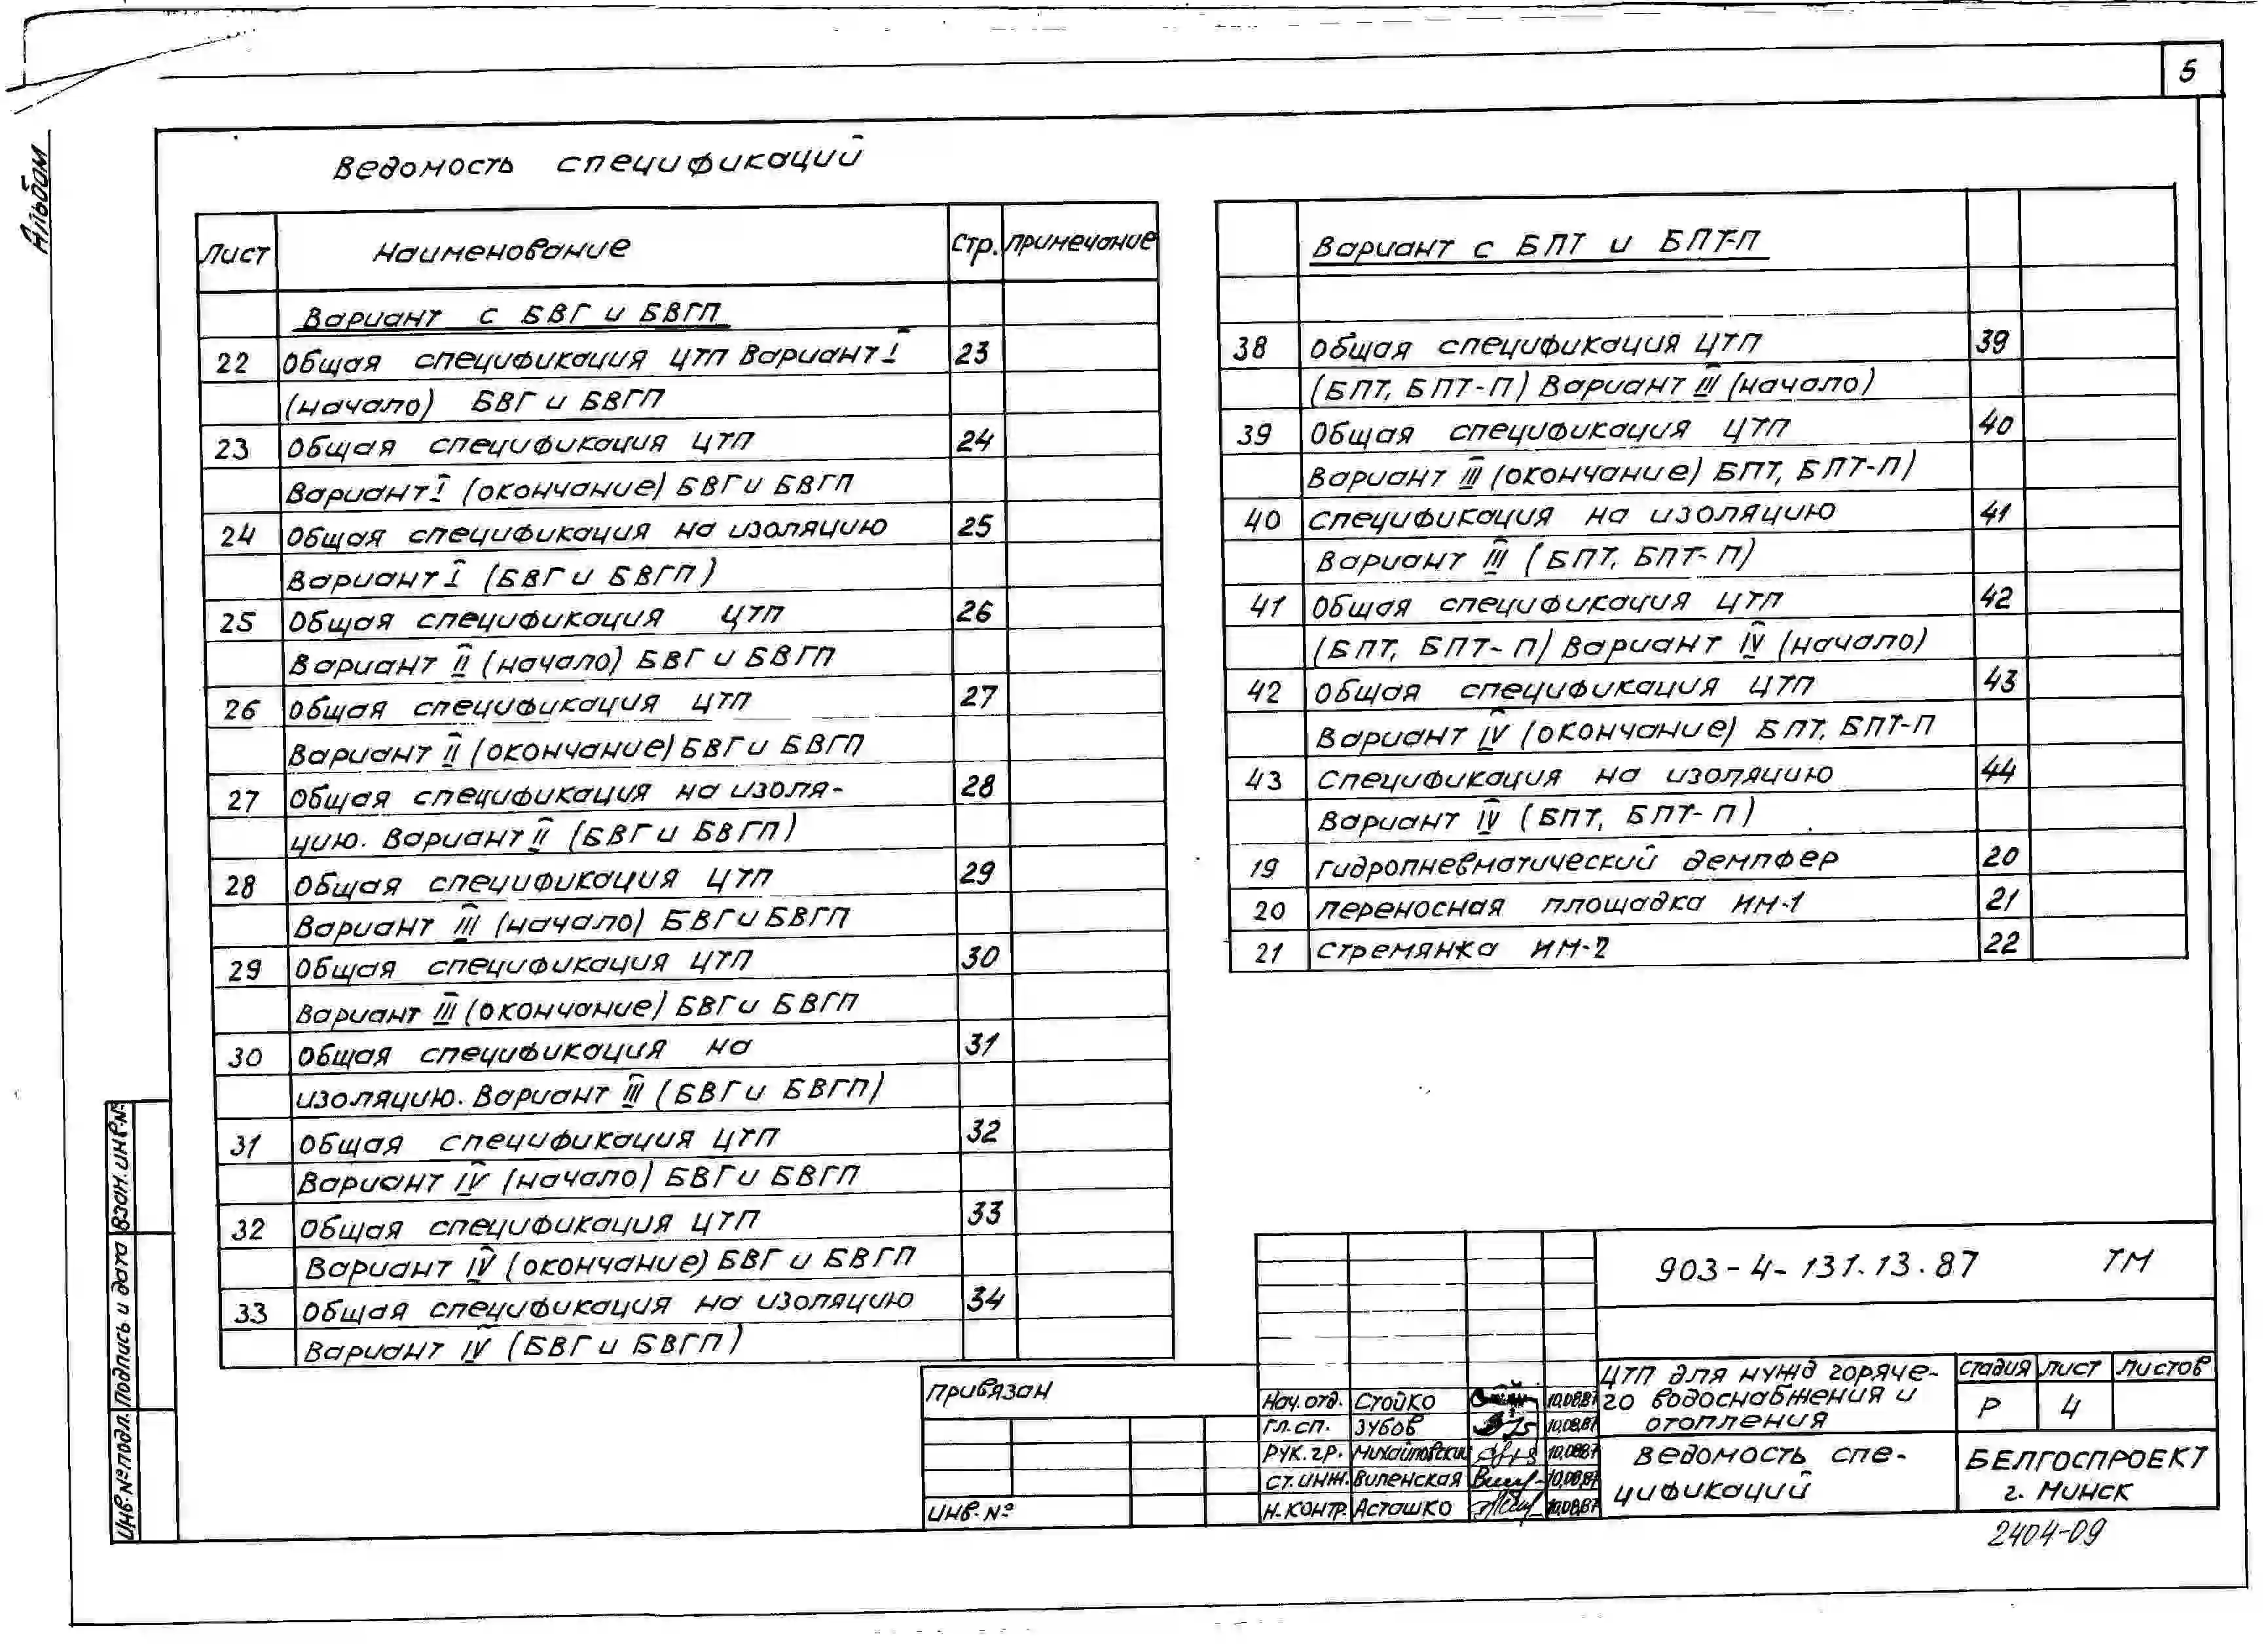 5
Альбом
Ведомость спецификаций
Лист Наименование Стр. Примечание
Вариант с БВГ и БВГП
22 Общая спецификация ЦТП Вариант I 23
(начало) БВГ и БВГП
23 Общая спецификация ЦТП 24
Вариант I (окончание) БВГ и БВГП
24 Общая спецификация на изоляцию 25
Вариант I (БВГ и БВГП)
25 Общая спецификация ЦТП 26
Вариант II (начало) БВГ и БВГП
26 Общая спецификация ЦТП 27
Вариант II (окончание) БВГ и БВГП
27 Общая спецификация на изоля- 28
цию. Вариант II (БВГ и БВГП)
28 Общая спецификация ЦТП 29
Вариант III (начало) БВГ и БВГП
29 Общая спецификация ЦТП 30
Вариант III (окончание) БВГ и БВГП
30 Общая спецификация на 31
изоляцию. Вариант III (БВГ и БВГП)
31 Общая спецификация ЦТП 32
Вариант IV (начало) БВГ и БВГП
32 Общая спецификация ЦТП 33
Вариант IV (окончание) БВГ и БВГП
33 Общая спецификация на изоляцию 34
Вариант IV (БВГ и БВГП)
Вариант с БПТ и БПТ-П
38 Общая спецификация ЦТП 39
(БПТ, БПТ-П) Вариант III (начало)
39 Общая спецификация ЦТП 40
Вариант III (окончание) БПТ, БПТ-П)
40 Спецификация на изоляцию 41
Вариант III (БПТ, БПТ-П)
41 Общая спецификация ЦТП 42
(БПТ, БПТ-П) Вариант IV (начало)
42 Общая спецификация ЦТП 43
Вариант IV (окончание) БПТ, БПТ-П
43 Спецификация на изоляцию 44
Вариант IV (БПТ, БПТ-П)
19 Гидропневматический демпфер 20
20 Переносная площадка ИМ-1 21
21 Стремянка ИМ-2 22
Взам. инв.№
Подпись и дата
Инв.№ подл.
Привязан
Инв.№
903-4-131.13.87 ТМ
Нач. отд. Стойко 10.08.87
Гл. сп. Зубов 10.08.87
Рук. гр. Михайловский 10.08.87
Ст. инж. Виленская 10.08.87
Н. контр. Асташко 10.08.87
ЦТП для нужд горяче-
го водоснабжения и
отопления
Стадия Лист Листов
Р 4
Ведомость спе-
цификаций
БЕЛГОСПРОЕКТ
г. Минск
2404-09